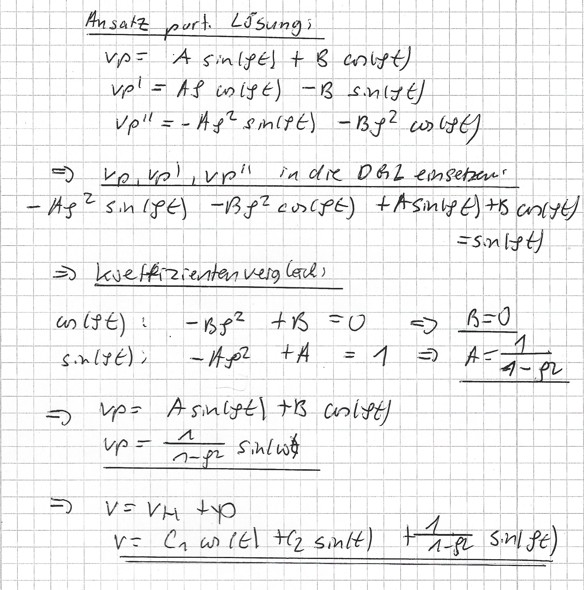 Ansatz part. Lösung:
vp = A sin(ρt) + B cos(ρt)
vp' = Aρ cos(ρt) - B sin(ρt)
vp'' = -Aρ² sin(ρt) - Bρ² cos(ρt)
=> vp, vp', vp'' in die DGL einsetzen:
-Aρ² sin(ρt) -Bρ² cos(ρt) + A sin(ρt) + B cos(ρt)
= sin(ρt)
=> Koeffizientenvergleich:
cos(ρt): -Bρ² + B = 0 => B = 0
sin(ρt): -Aρ² + A = 1 => A = 1/(1-ρ²)
=> vp = A sin(ρt) + B cos(ρt)
vp = 1/(1-ρ²) sin(ωt)
=> v = vH + yp
v = C1 cos(t) + C2 sin(t) + 1/(1-ρ²) sin(ρt)